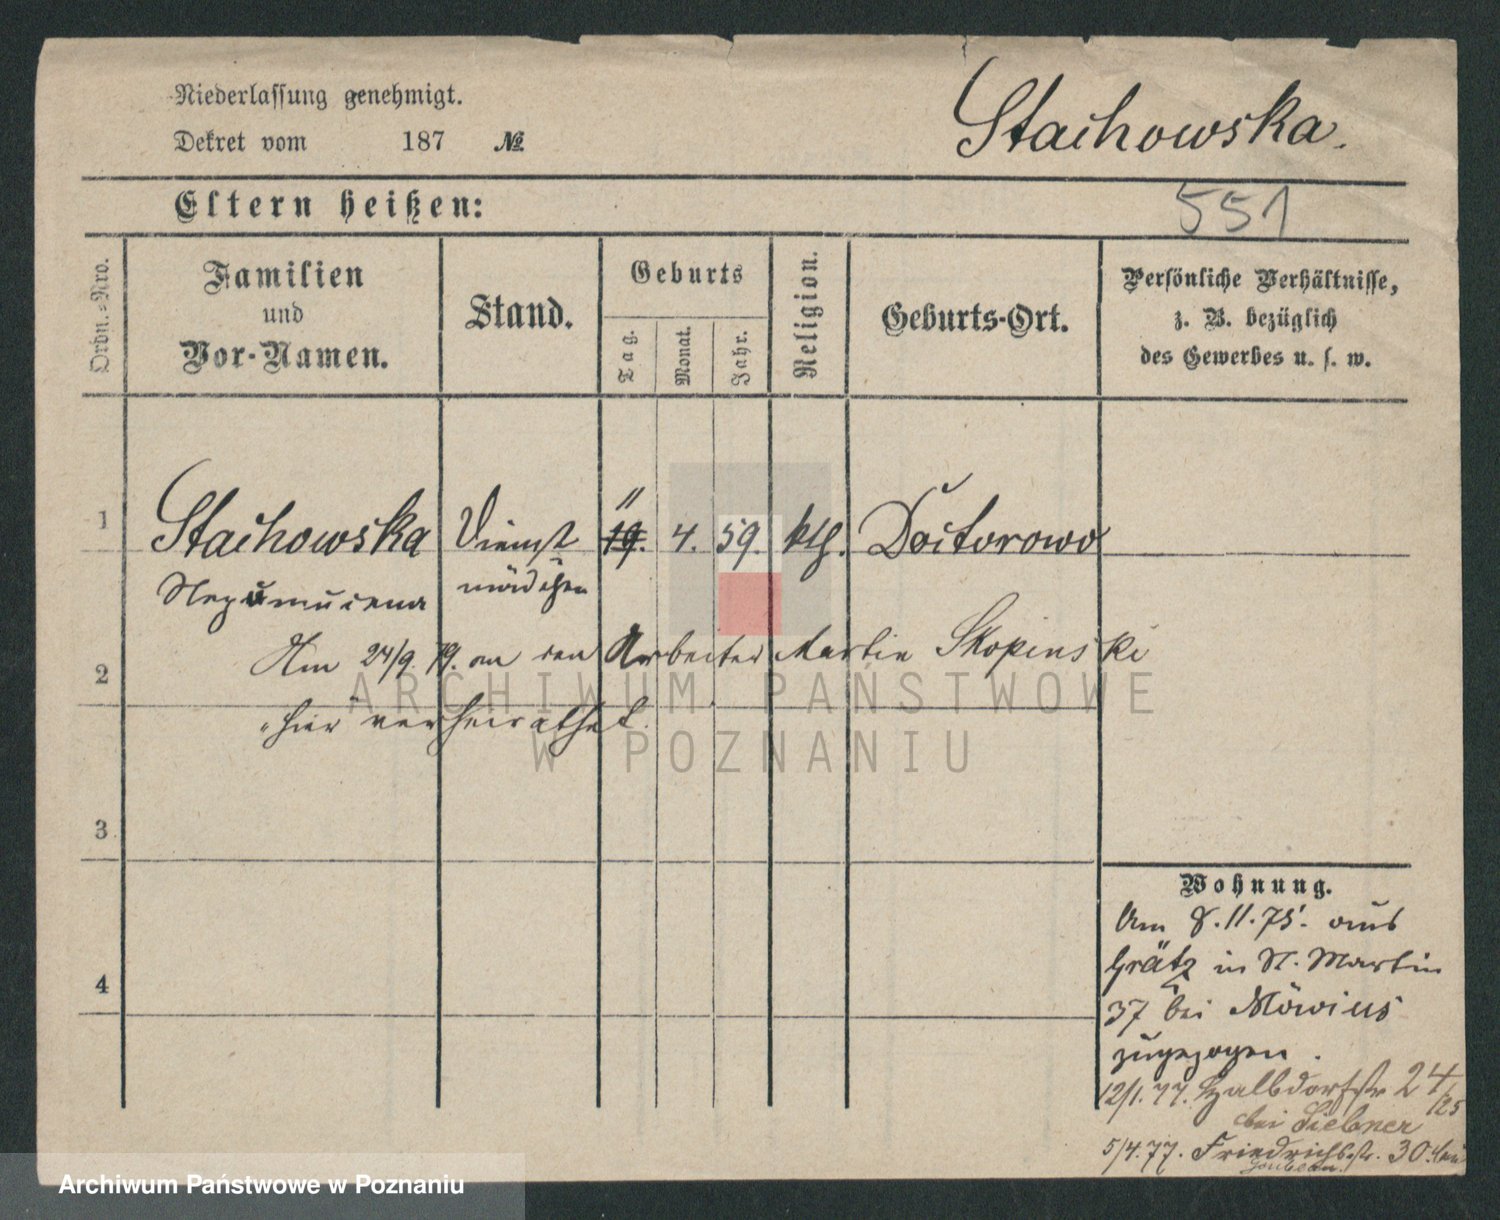 Niederlassung genehmigt.
Dekret vom 187 №
Stachowska.
Eltern heißen:
551
Ordn.-Nro.
Familien
und
Vor-Namen.
Stand.
Geburts
Tag.
Monat.
Jahr.
Religion.
Geburts-Ort.
Persönliche Verhältnisse,
z. B. bezüglich
des Gewerbes u. s. w.
1 Stachowska Dienst 19. 4. 59. kth. Doctorowo
Nepumucena mädchen
11
Am 24/9. 79. an den Arbeiter Martin Skopinski
2
hier verheirathet.
ARCHIWUM PAŃSTWOWE
W POZNANIU
3
4
Wohnung.
Am 8.11.75. aus
Grätz in St. Martin
37 bei Möwius
zugezogen.
12/1. 77. Halbdorfstr 24/25
bei Liebner
5/4. 77. Friedrichsstr. 30.
Archiwum Państwowe w Poznaniu